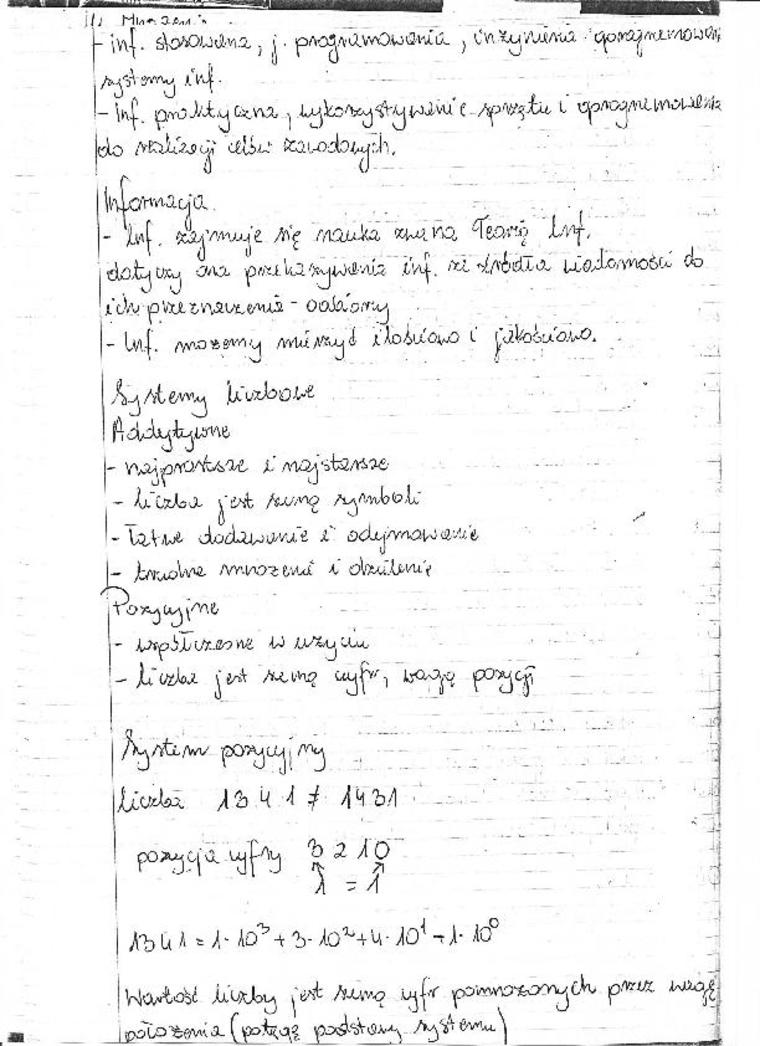 - inf. stosowana, j. programowania, inżynieria oprogramowań
systemy inf.
- Inf. praktyczna, wykorzystywanie sprzętu i oprogramowania
do realizacji celów zawodowych.
Informacja
- Inf. zajmuje się nauka zwana Teorią Inf.
dotyczy ona przekazywania inf. ze źródła wiadomości do
ich przeznaczenia - odbiorcy
- Inf. możemy mierzyć ilościowo i jakościowo.
Systemy liczbowe
Addytywne
- najprostsze i najstarsze
- liczba jest sumą symboli
- łatwe dodawanie i odejmowanie
- trudne mnożenie i dzielenie
Pozycyjne
- współczesne w użyciu
- liczba jest sumą cyfr, wagą pozycji
System pozycyjny
liczba 1341 ≠ 1431
pozycja cyfry 3 2 1 0
1 = 1
1341 = 1·10³ + 3·10² + 4·10¹ + 1·10⁰
Wartość liczby jest sumą cyfr pomnożonych przez wagę
położenia (potęgę podstawy systemu)